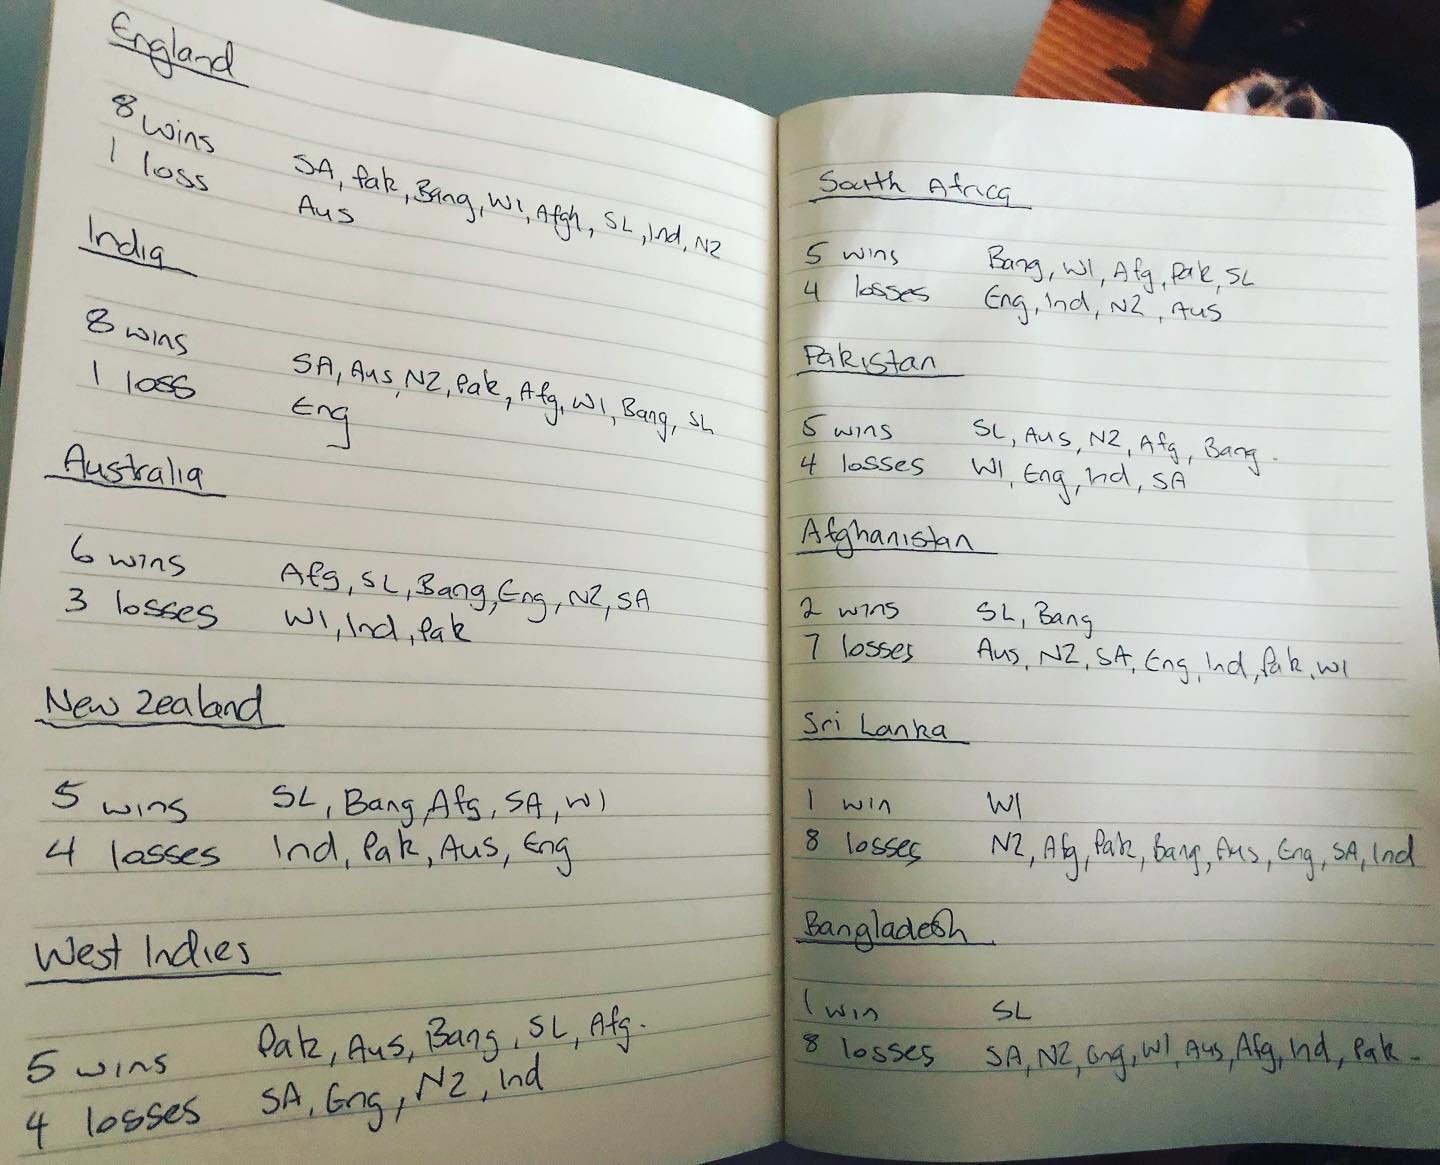 England
8 wins SA, Pak, Bang, WI, Afgh, SL, Ind, NZ
1 loss Aus
India
8 wins SA, Aus, NZ, Pak, Afg, WI, Bang, SL
1 loss Eng
Australia
6 wins Afg, SL, Bang, Eng, NZ, SA
3 losses WI, Ind, Pak
New Zealand
5 wins SL, Bang, Afg, SA, WI
4 losses Ind, Pak, Aus, Eng
West Indies
5 wins Pak, Aus, Bang, SL, Afg.
4 losses SA, Eng, NZ, Ind
South Africa
5 wins Bang, WI, Afg, Pak, SL
4 losses Eng, Ind, NZ, Aus
Pakistan
5 wins SL, Aus, NZ, Afg, Bang.
4 losses WI, Eng, Ind, SA
Afghanistan
2 wins SL, Bang
7 losses Aus, NZ, SA, Eng, Ind, Pak, WI
Sri Lanka
1 win WI
8 losses NZ, Afg, Pak, Bang, Aus, Eng, SA, Ind
Bangladesh
1 win SL
8 losses SA, NZ, Eng, WI, Aus, Afg, Ind, Pak.